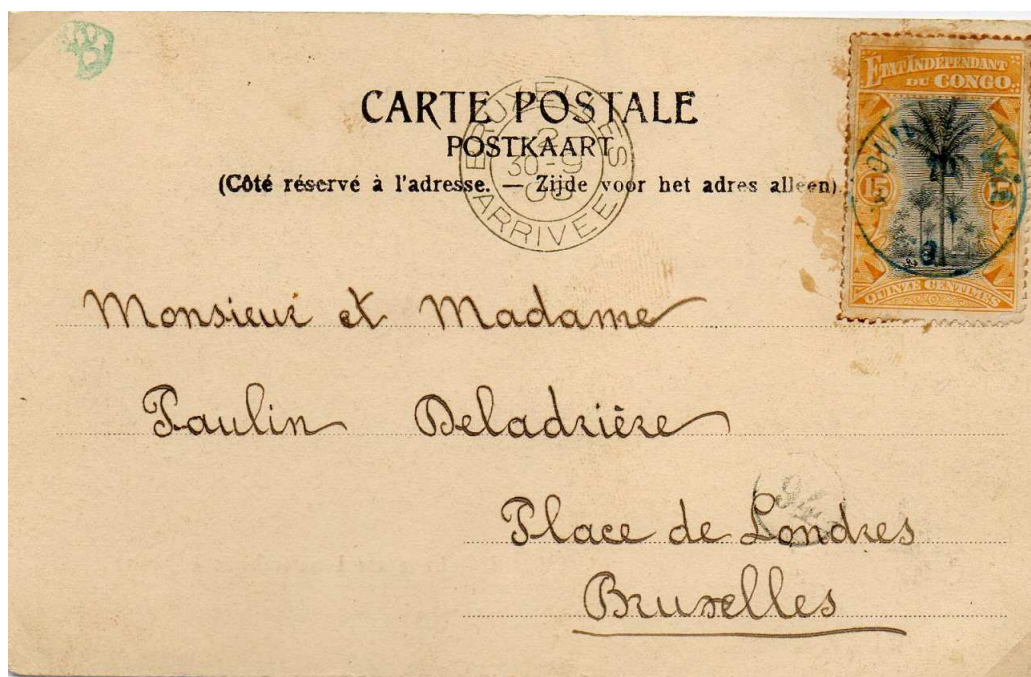 CARTE POSTALE
POSTKAART
(Côté réservé à l'adresse. — Zijde voor het adres alleen).
BRUXELLES
30-9
ARRIVEE
ÉTAT INDÉPENDANT
DU CONGO
15 15
QUINZE CENTIMES
Monsieur et Madame
Paulin Deladrière
94
Place de Londres
Bruxelles